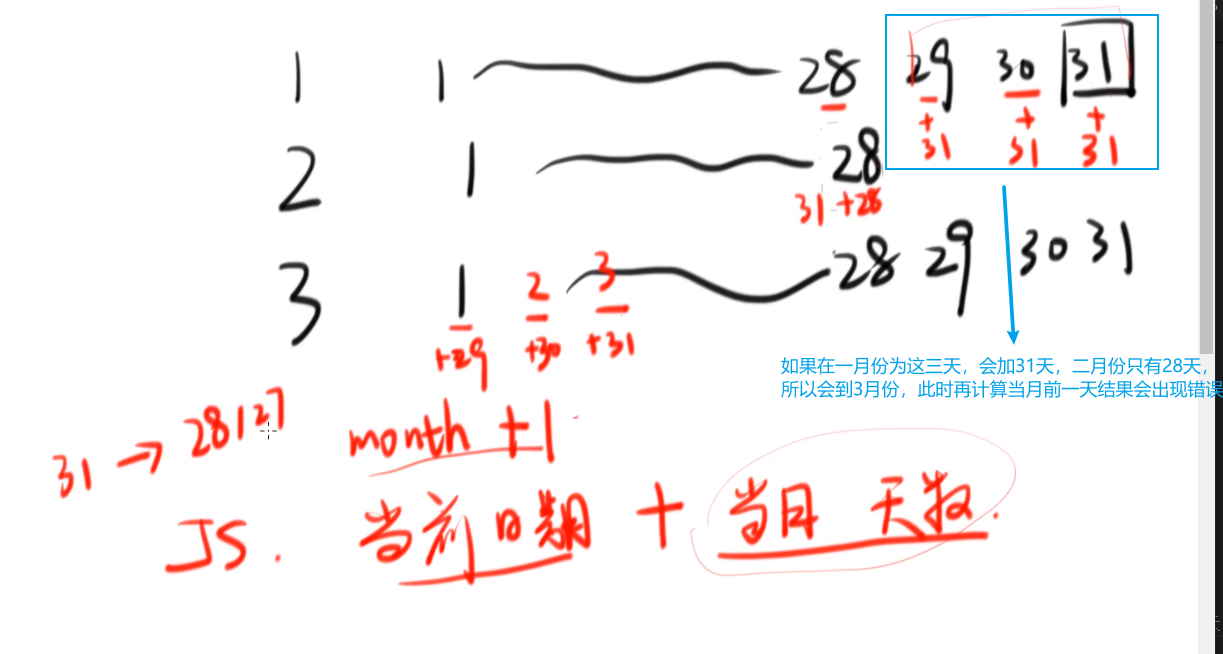 1 1 28 29 30 31
+ + +
31 31 31
2 1 28
31 +28
3 1 2 3 28 29 30 31
+29 +30 +31
如果在一月份为这三天，会加31天，二月份只有28天，
所以会到3月份，此时再计算当月前一天结果会出现错误
31 → 28 27
month +1
JS. 当前日期 + 当月 天数.